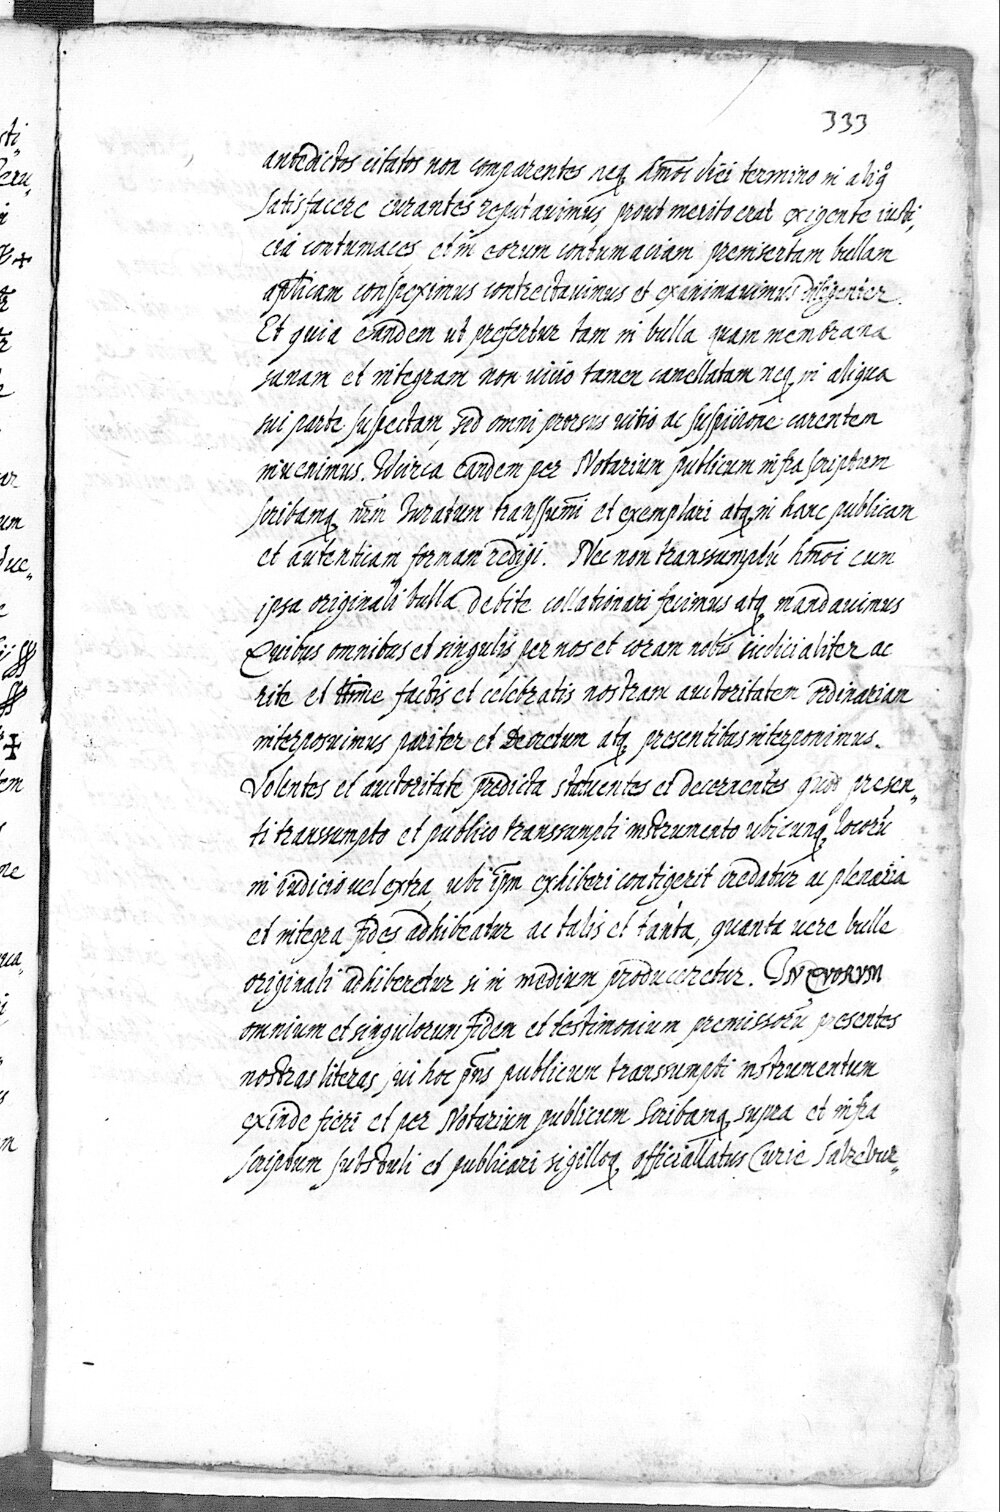 333
antedictos citatos non comparentes neq̨ hmōi diei termino in aliq̊
satisfacere curantes reputauimus, prout merito erat exigente iusti,
cia contumaces et in eorum contumaciam premisertam bullam
aplicam conspeximus contrectauimus et examinauimus diligenter.
Et quia eandem ut prefertur tam in bulla quam membrana
sanam et integram non uitio tamen cancellatam neq̨ in aliqua
sui parte suspectam, sed omni prorsus uitio ac suspicione carentem
inuenimus. Idcirca eandem per Notarium publicum infra scriptum
scribamq̨ nrm̄ Iuratum transsumi et exemplari atq̨ in hanc publicam
et autenticam formam redigi. Nec non transsumptū hmōi cum
ipsa originali bulla debite collationari fecimus atq̨ mandauimus
Quibus omnibus et singulis per nos et coram nobis iudicialiter ac
rite et ltime factis et celebratis nostram auctoritatem ordinariam
interposuimus pariter et Decretum atq̨ presentibus interponimus.
Volentes et auctoritate predicta statuentes et decernentes quod presen„
ti transsumpto et publico transsumpti instrumento ubicunq̨ locorū
in iudicio uel extra, ubi ipm̄ exhiberi contigerit credatur ac plenaria
et integra fides adhibeatur ac talis et tanta, quanta uere bulle
originali adhiberetur si in medium produceretur. IN QVORVM
omnium et singulorum fidem et testimonium premissorū presentes
nostras literas, siu hoc pn̄s publicum transsumpti instrumentum
exinde fieri et per Notarium publicum Scribamq̨ supra et infra
scriptum subscribi et publicari sigilloq̨ officiallatus Curie Salzebur„